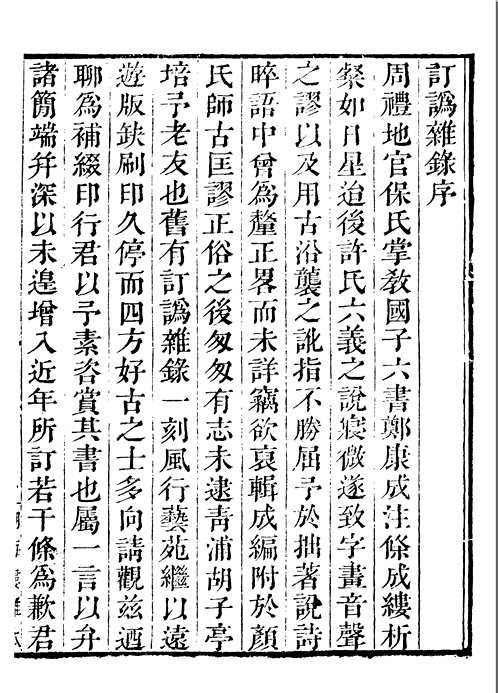 訂譌雜錄序
周禮地官保氏掌敎國子六書鄭康成注條成縷析
粲如日星迨後許氏六義之說寖微遂致字畫音聲
之謬以及用古沿襲之訛指不勝屈予於拙著說詩
晬語中曾爲釐正畧而未詳竊欲裒輯成編附於顏
氏師古匡謬正俗之後匆匆有志未逮靑浦胡子亭
培予老友也舊有訂譌雜錄一刻風行藝苑繼以遠
遊版缺刷印久停而四方好古之士多向請觀兹迺
聊爲補綴印行君以予素咨賞其書也屬一言以弁
諸簡端幷深以未遑增入近年所訂若干條爲歉君